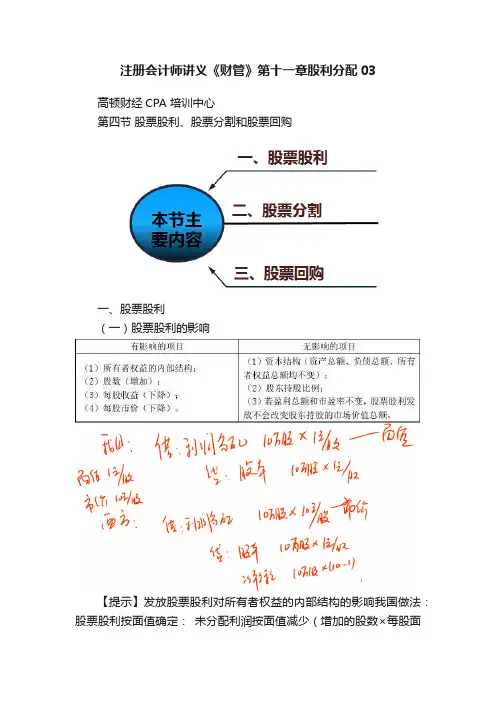 注册会计师讲义《财管》第十一章股利分配03
高顿财经CPA培训中心
第四节 股票股利、股票分割和股票回购
本节主要内容
一、股票股利
二、股票分割
三、股票回购
一、股票股利
（一）股票股利的影响
有影响的项目
无影响的项目
（1）所有者权益的内部结构；
（2）股数（增加）；
（3）每股收益（下降）；
（4）每股市价（下降）。
（1）资本结构（资产总额、负债总额、所有者权益总额均不变）；
（2）股东持股比例；
（3）若盈利总额和市盈率不变，股票股利发放不会改变股东持股的市场价值总额。
我国： 借：利润分配 10万股×1元/股 —— 面值
面值1元/股 贷：股本 10万股×1元/股
市价10元/股
西方： 借：利润分配 10万股×10元/股 市价
贷：股本 10万股×1元/股
10万股×(10-1)
【提示】发放股票股利对所有者权益的内部结构的影响我国做法：
股票股利按面值确定： 未分配利润按面值减少（增加的股数×每股面